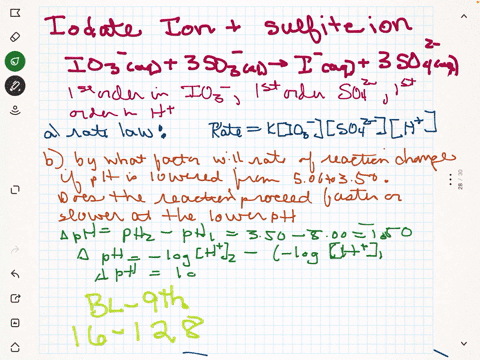 Iodate Ion + sulfite ion
IO₃⁻(aq) + 3SO₃⁻(aq) → I⁻(aq) + 3SO₄²⁻(aq)
1st order in IO₃⁻, 1st order SO₄²⁻, 1st
order in H⁺
a) rate law: Rate = K[IO₃⁻][SO₄²⁻][H⁺]
b) by what factor will rate of reaction change
if pH is lowered from 5.00 to 3.50.
Does the reaction proceed faster or
slower at the lower pH
Δ pH = pH₂ - pH₁ = 3.50 - 5.00 = -1.50
Δ pH = -log [H⁺]₂ - (-log [H⁺]₁
Δ pH = 10
BL-9th
16-128
28 / 30